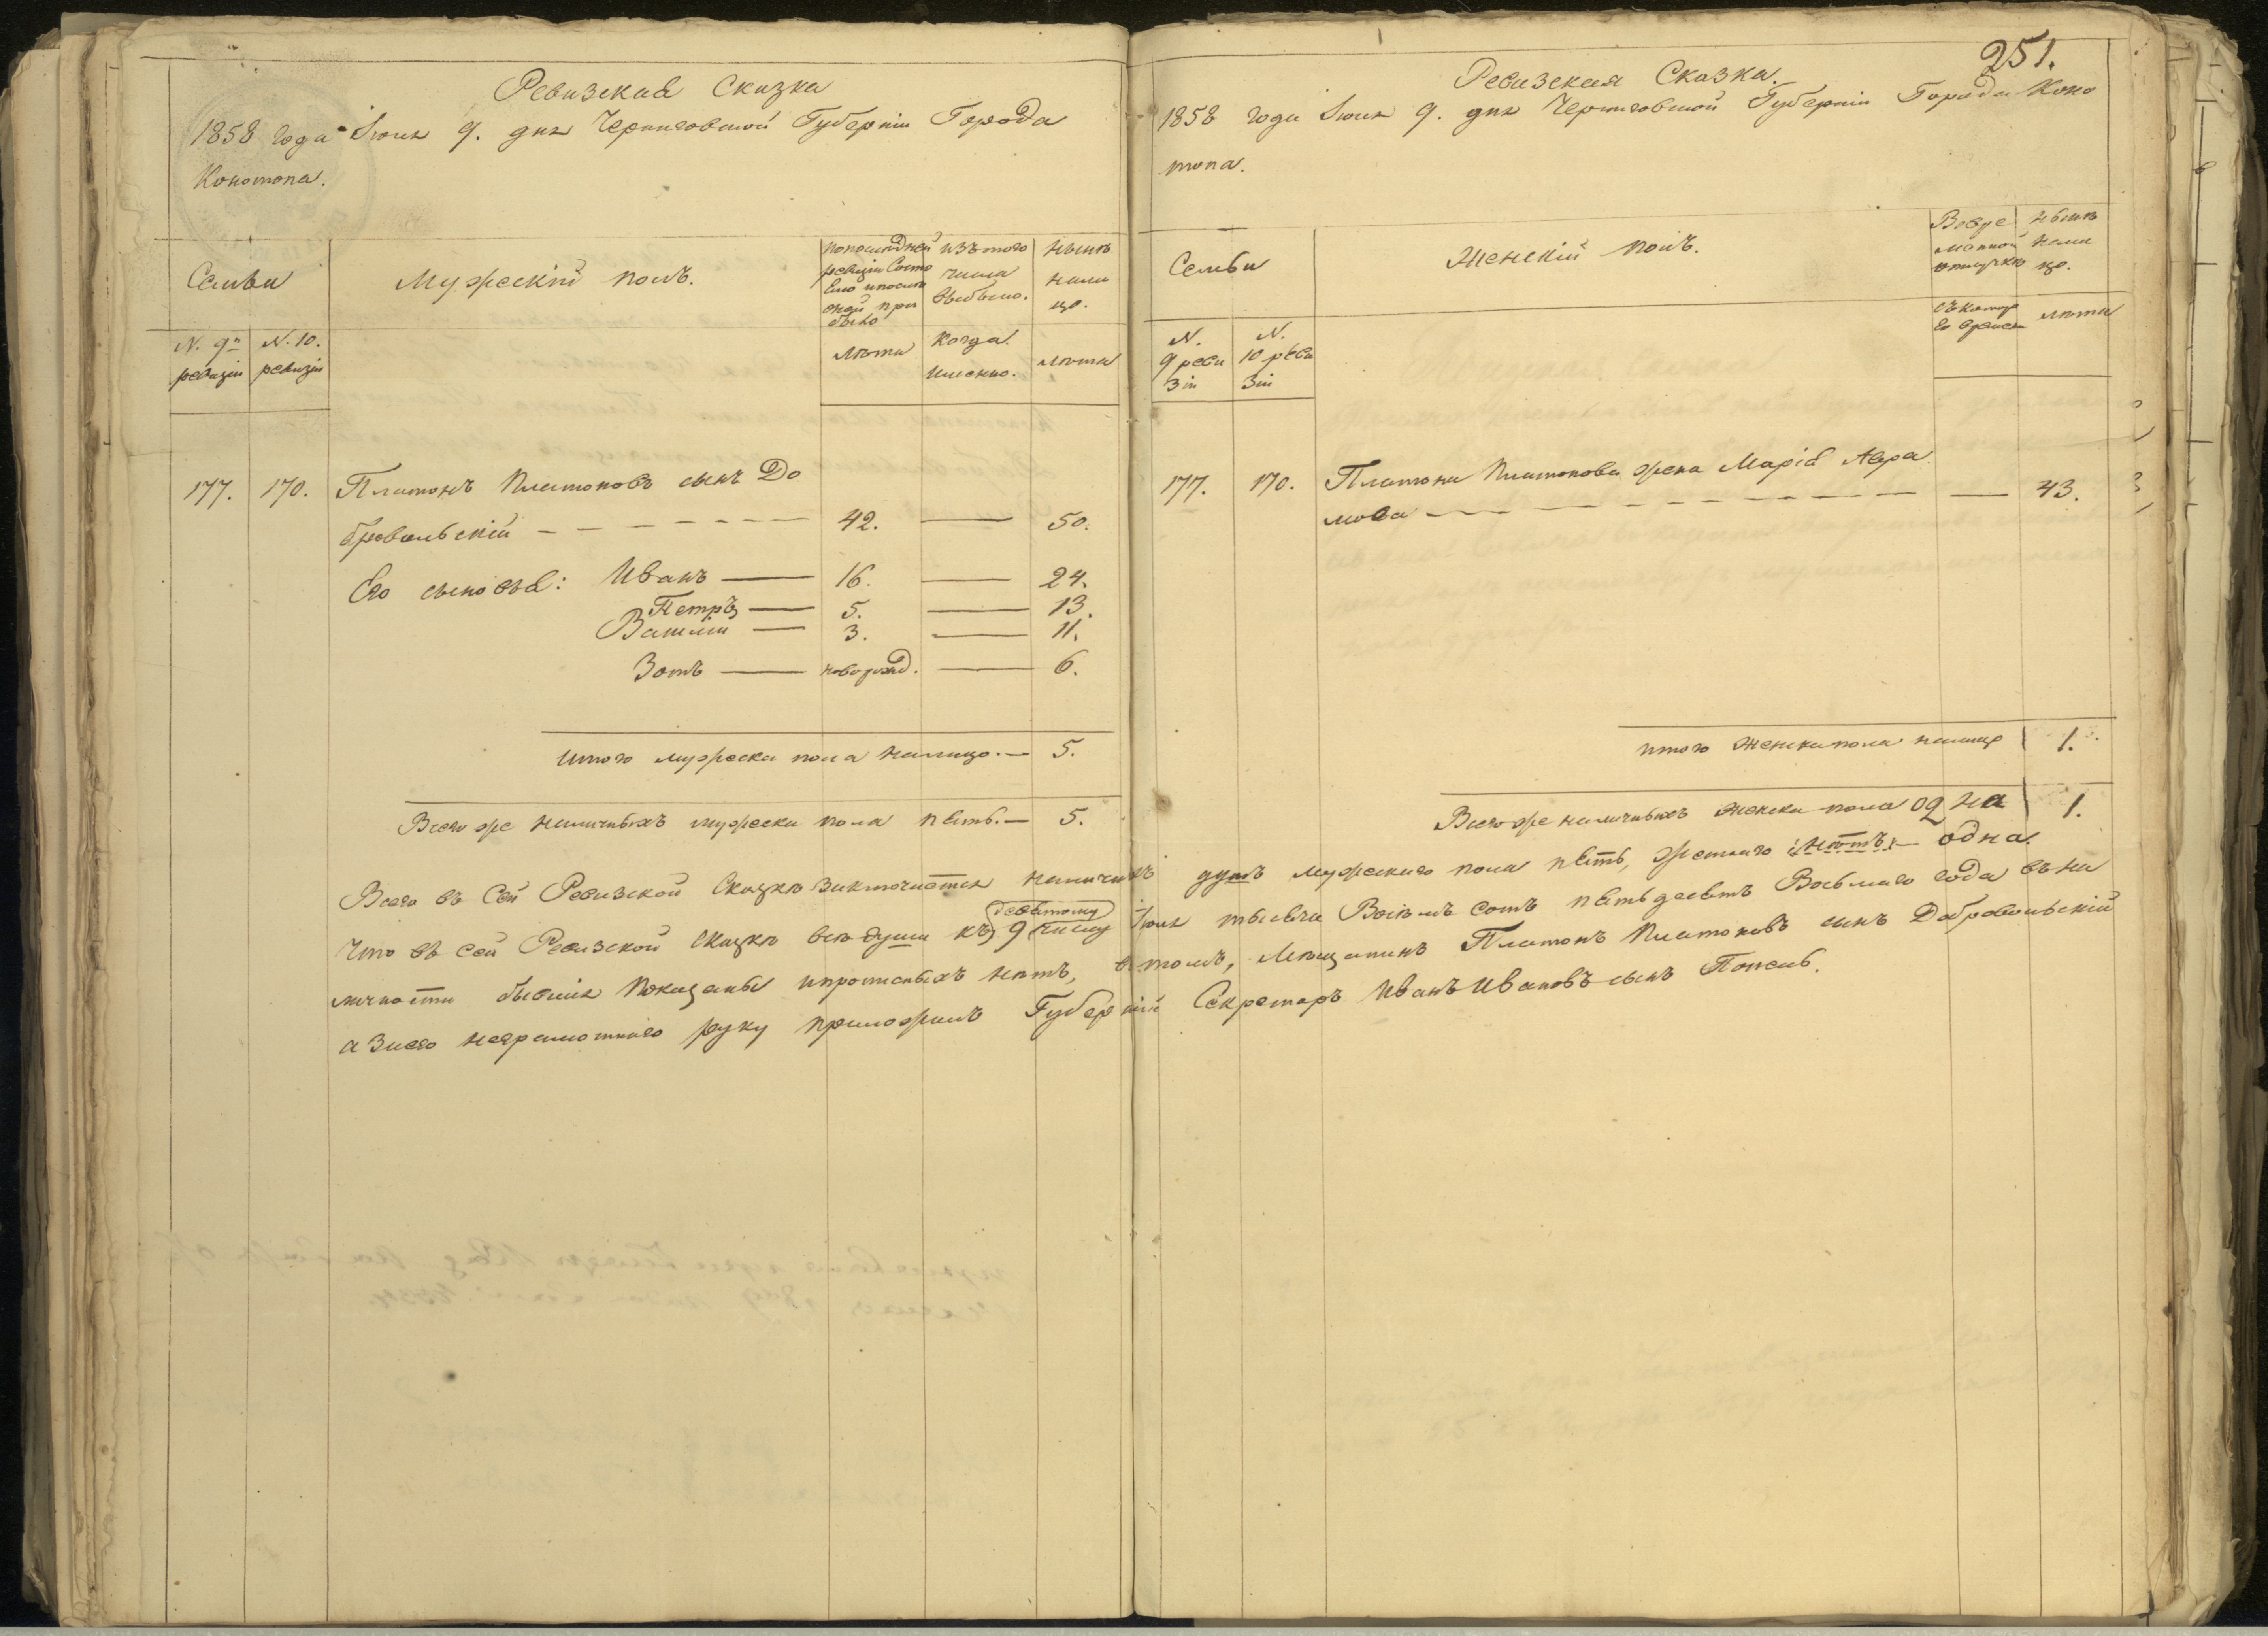 Ревизская Сказка
1858 года Іюня 9. дня Черниговской Губерніи Города
Конотопа.
Семьи
Мужескій полъ.
по последней ревизіи состояло и после оной прибыло
изъ того числа выбыло.
ныне налицо.
N. 9й ревизіи
N. 10. ревизіи
лета
когда именно.
лета
177. 170. Платонъ Платоновъ сынъ До
бровольскій — 42. — 50.
Его сыновья: Иванъ — 16. — 24.
Петръ — 5. — 13.
Василій — 3. — 11.
Зотъ — новорожд. — 6.
итого мужеска пола налицо. — 5.
Всего же наличныхъ мужеска пола пять. — 5.
251.
Ревизская Сказка.
1858 года Іюня 9. дня Черниговской Губерніи Города Коно
топа.
Семьи
Женскій полъ.
Во вре
менной
отлучкѣ
нынѣ
нали
цо.
N.
9 реви
зіи
N.
10 реви
зіи
съ котор
го времени
лѣта
177. 170. Платона Платонова жена Марія Авра
мова — 43.
итого женска пола налицо 1.
Всего же наличныхъ женска пола одна 1.
Всего въ сей Ревизской Сказкѣ заключается наличныхъ душъ мужескаго пола пять, женскаго нѣтъ одна.
девятому
Что въ сей Ревизской Сказкѣ всѣ души къ 9 числу Іюня тысяча восемь сотъ пятьдесятъ восьмаго года въ на
личности бывшія показаны и прописныхъ нѣтъ, въ томъ, Мѣщанинъ Платонъ Платоновъ сынъ Добровольскій
а за него неграмотнаго руку приложилъ Губернскій Секретарь Иванъ Ивановъ сынъ